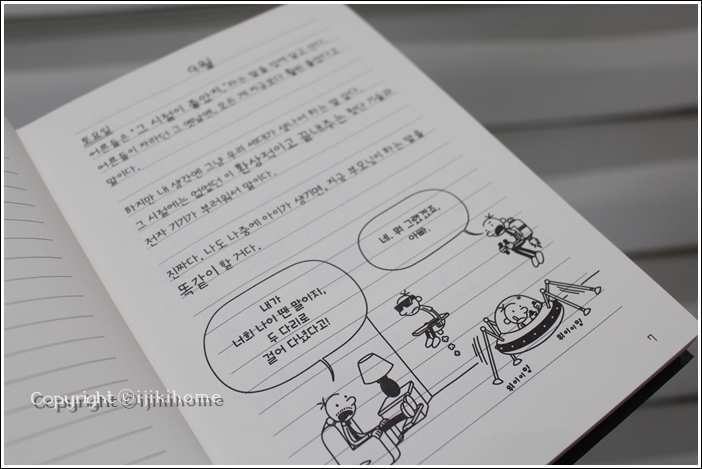 9월
토요일
어른들은 "그 시절이 좋았지."라는 말을 입에 달고 산다.
어른들이 자라던 그 옛날엔, 모든 게 지금보다 훨씬 좋았다고
말이다.
하지만 내 생각엔 그냥 우리 세대가 샘나서 하는 말 같다.
그 시절에는 없었던 이 환상적이고 끝내주는 첨단 기술과
전자 기기가 부러워서 말이다.
진짜다. 나도 나중에 아이가 생기면, 지금 부모님이 하는 말을
똑같이 할 거다.
네. 뭐 그랬겠죠,
아빠.
내가
너희 나이 땐 말이지,
두 다리로
걸어 다녔다고!
위이이잉
위이이잉
7
Copyright ⓒijikihome